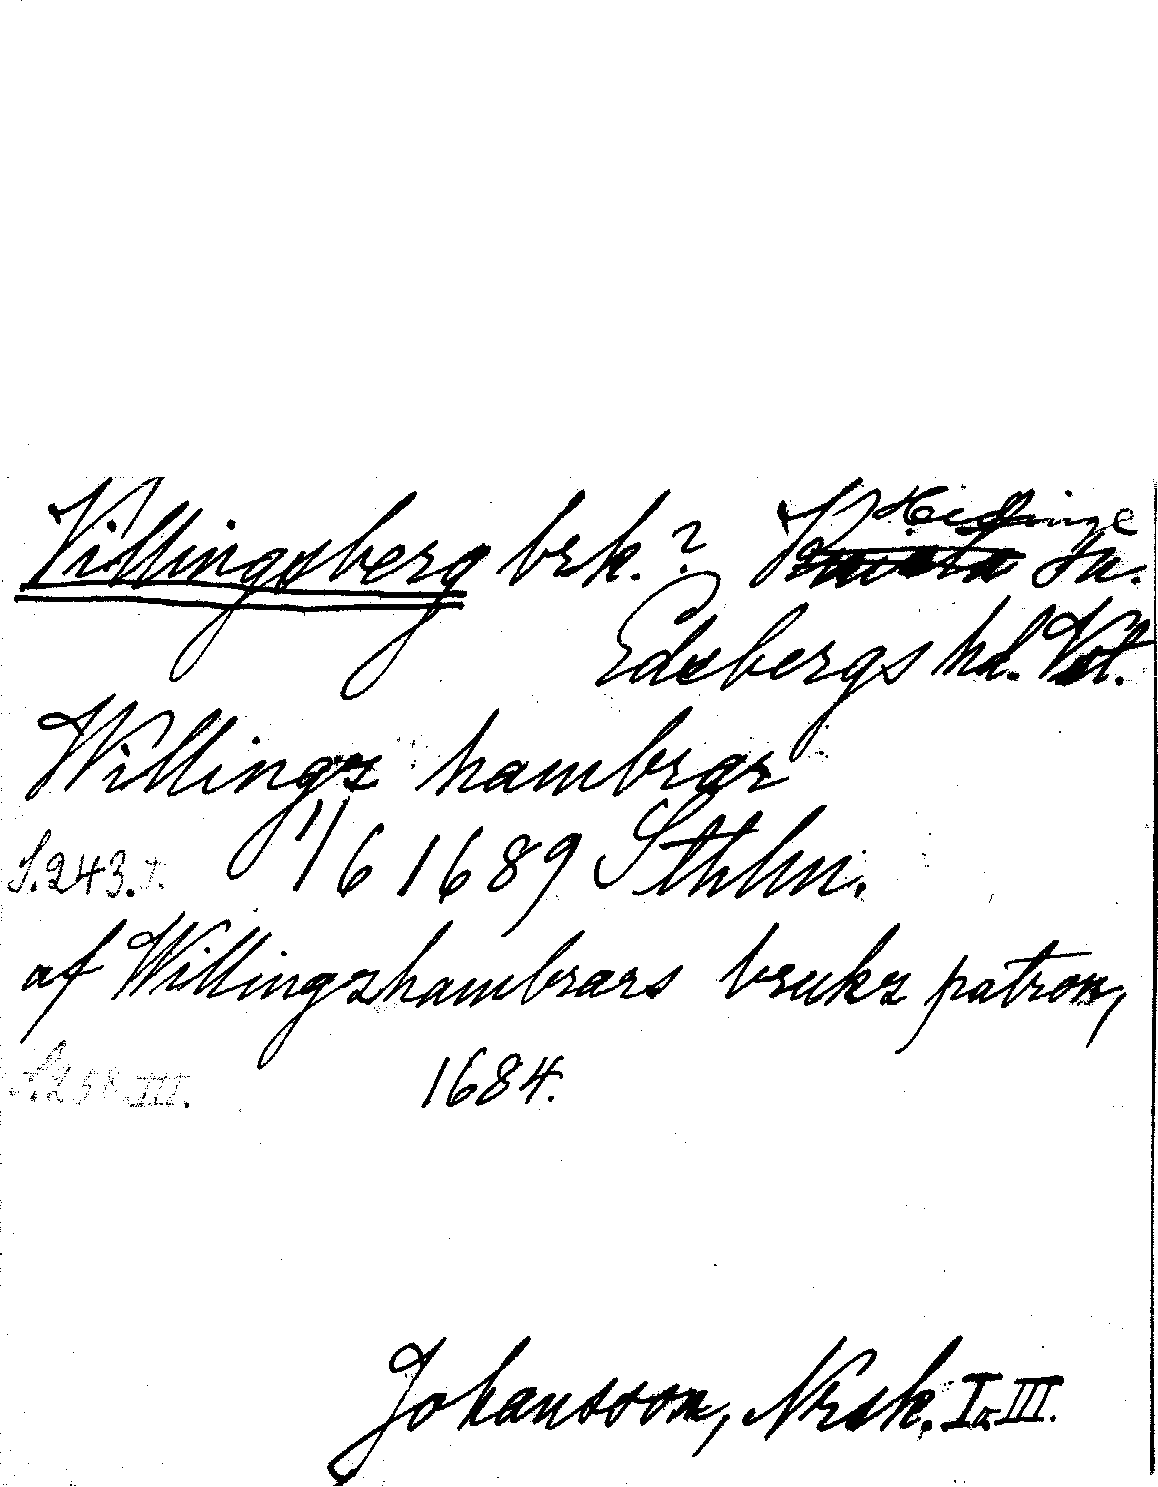 Villingsberg brk.? Hidinge sn.
Edsbergs hd. Vst.
Willings hambrar
S.243.I. 1/6 1689 Sthlm.
af Willingzhambrars brukz patron,
S.258 III. 1684.
Johansson, Nrsk. I o. III.